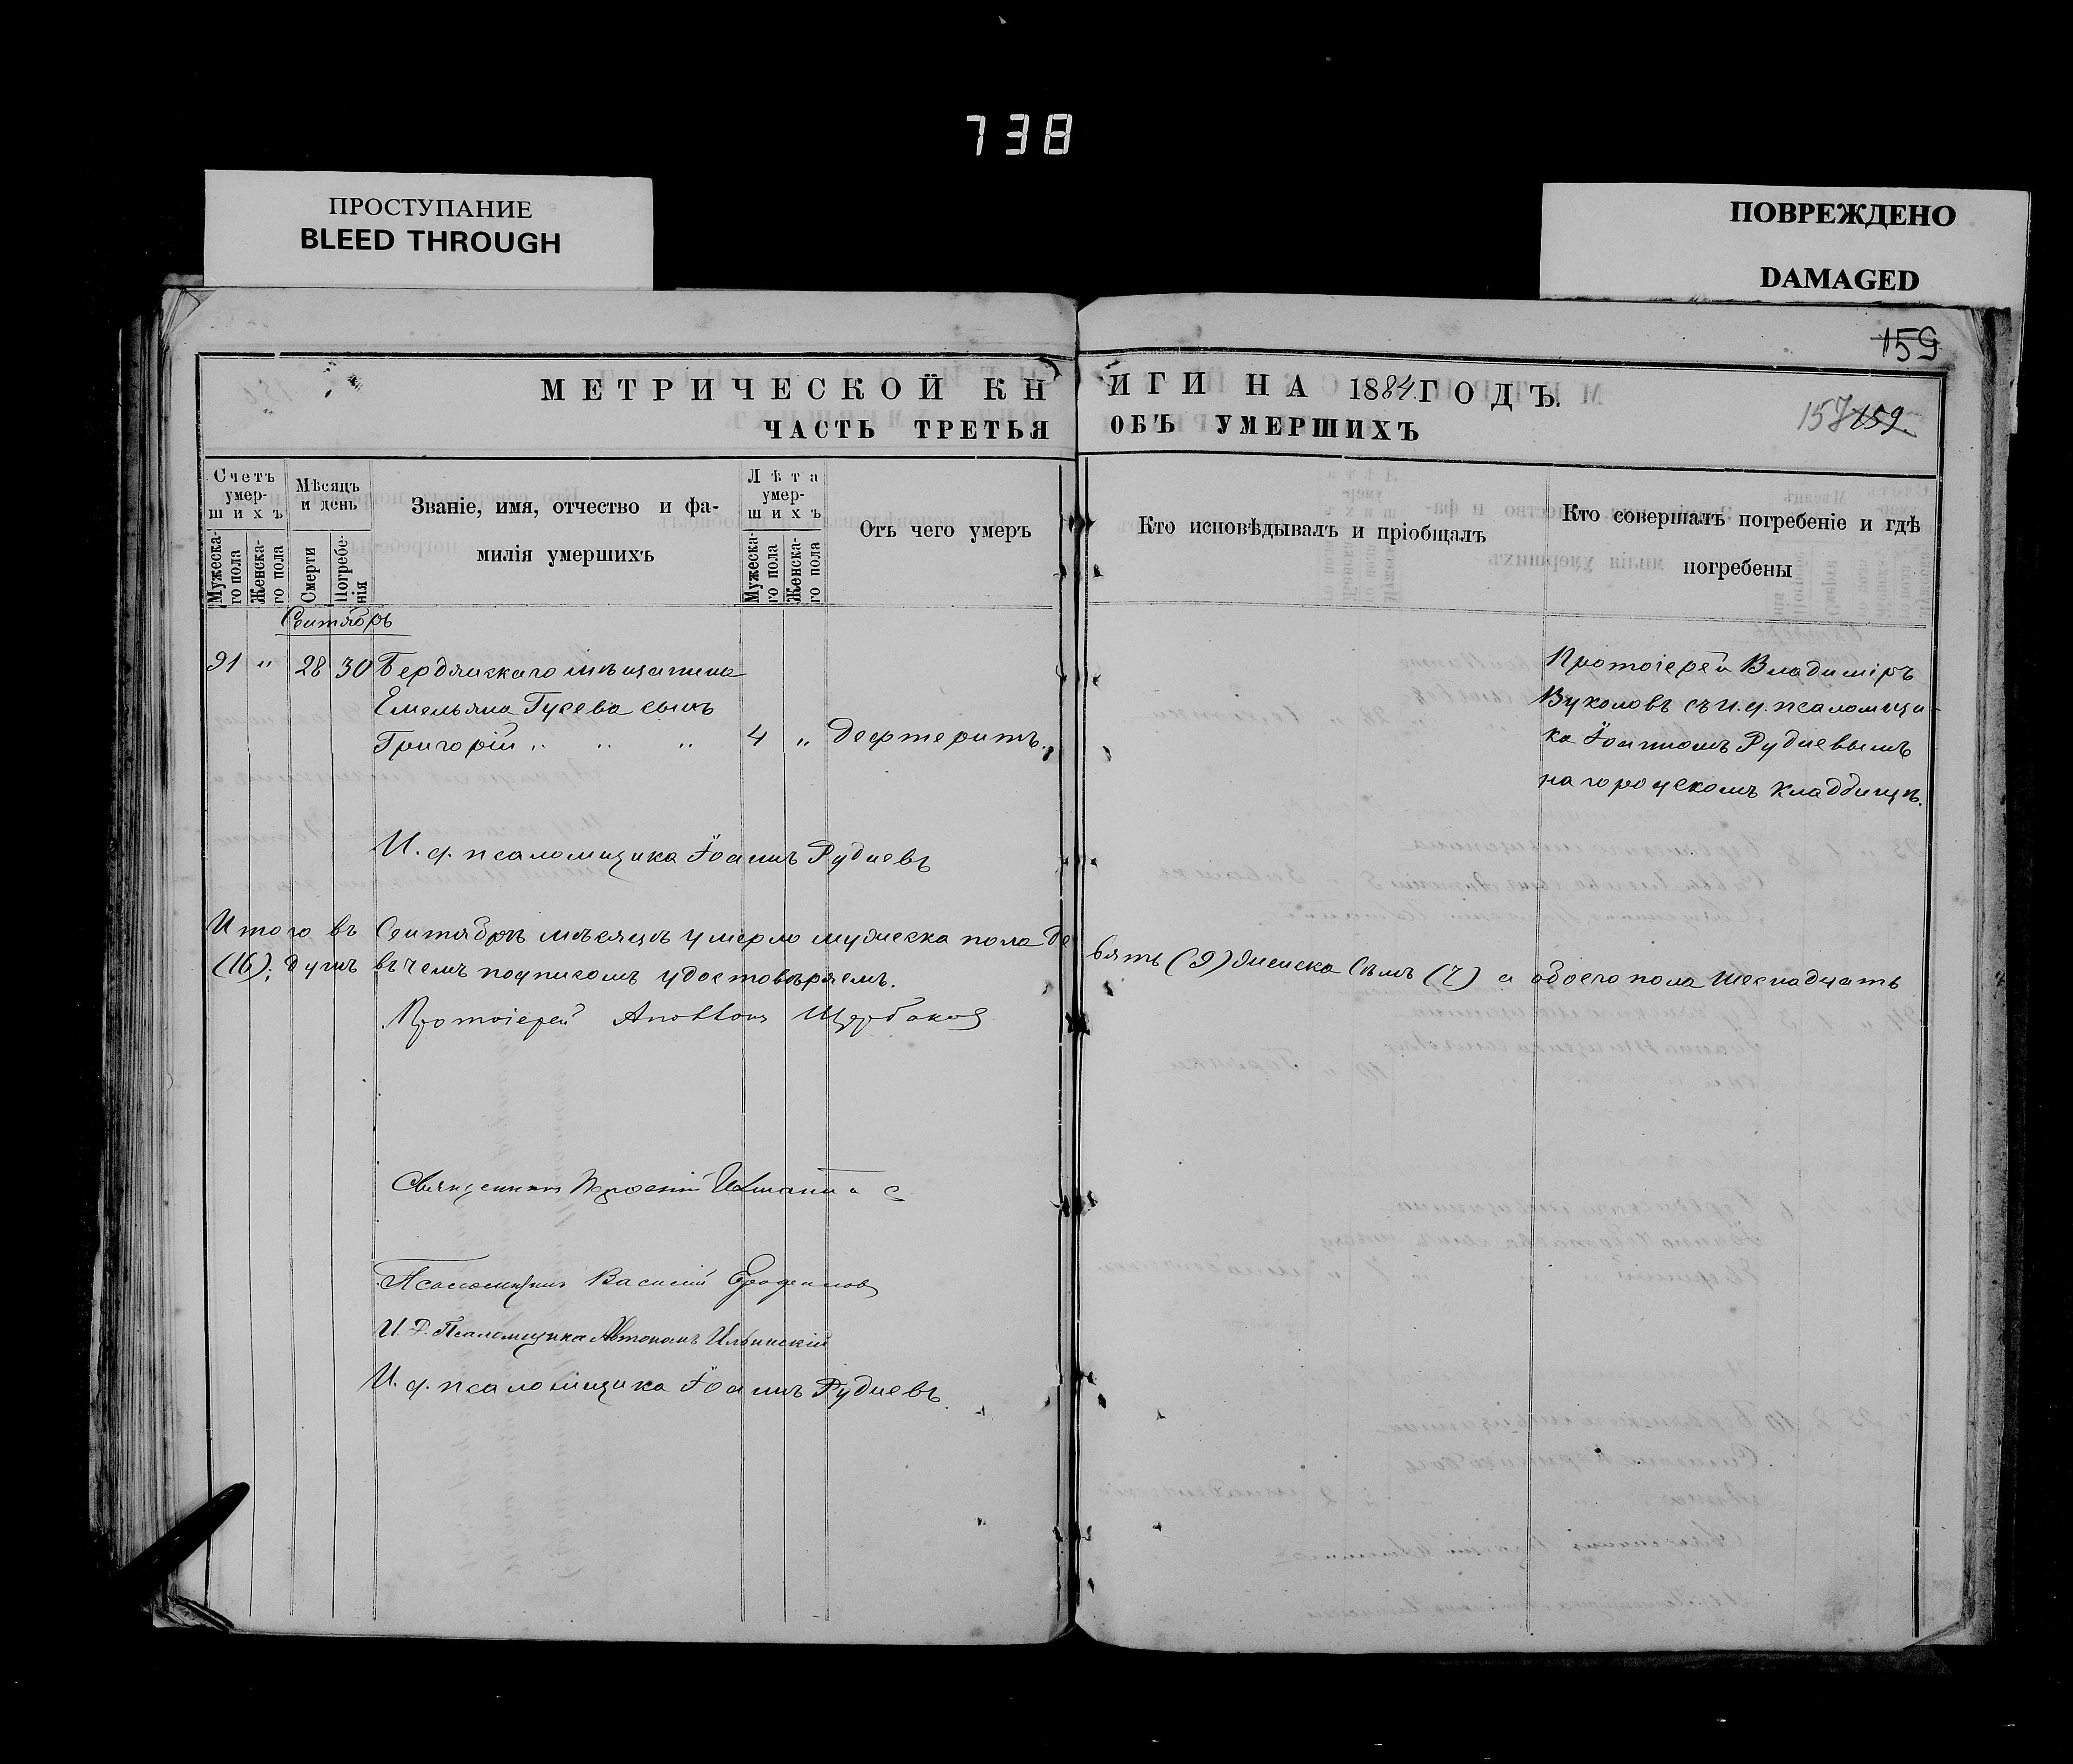 738
ПРОСТУПАНИЕ
BLEED THROUGH
ПОВРЕЖДЕНО
DAMAGED
159
МЕТРИЧЕСКОЙ КНИГИ НА 1884 ГОДЪ.
157 159.
ЧАСТЬ ТРЕТЬЯ ОБЪ УМЕРШИХЪ
Счетъ умер-шихъ
Мужеска-го пола
Женска-го пола
Мѣсяцъ и день
Смерти
Погребе-нія
Званіе, имя, отчество и фа-
милія умершихъ
Лѣта умер-шихъ
Мужеска-го пола
Женска-го пола
Отъ чего умеръ
Кто исповѣдывалъ и пріобщалъ
Кто совершалъ погребеніе и гдѣ
погребены
Сентябрь
91 " 28 30 Бердянскаго мѣщанина
Емельяна Гусева сынъ
Григорій " " " 4 " Дефтеритъ.
Протоіерей Владиміръ
Вуколовъ съ и. д. псаломщи-
ка Іоанномъ Рудневымъ
на городскомъ кладбищѣ.
И. д. псаломщика Іоаннъ Рудневъ
Итого въ Сентябрѣ мѣсяцѣ умерло мужеска пола девять (9) женска семь (7) а обоего пола шеснадцать
(16); душъ въ чемъ подписомъ удостовѣряемъ.
Протоіерей Щербаковъ
Священникъ
Псаломщикъ Василій
И. Д. Псаломщика Автономъ Ильинскій
И. д. псаломщика Іоаннъ Рудневъ.